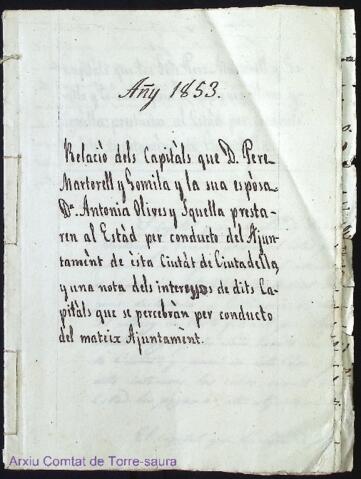 Añy 1853.
Relaciò dels Capitàls que D. Pere
Martorell y Gomila y la sua espòsa
Dª. Antonia Olives y Squella presta-
ren al Estàd per conducto del Ajun-
tamènt de ésta Ciutàt de Ciutadella,
y una nota dels interessos de dits Ca-
pitàls que se percebràn per conducto
del mateix Ajuntamènt.
Arxiu Comtat de Torre-saura